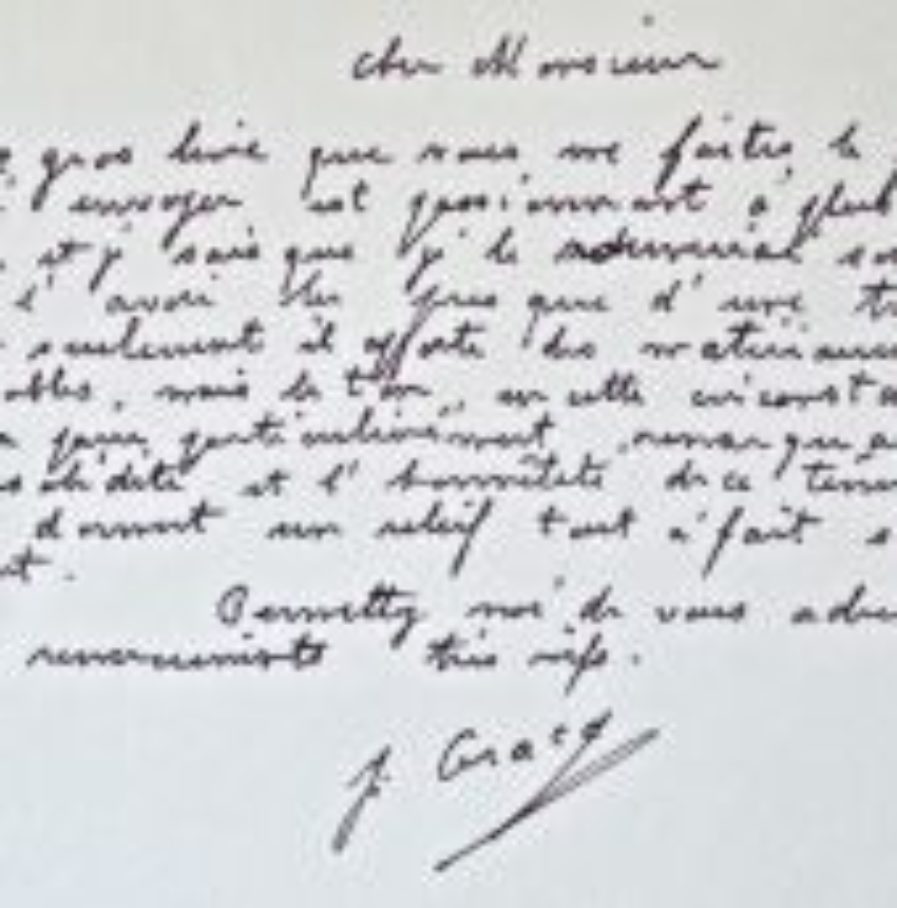 cher Monsieur
gros livre que vous me faites le
envoyer est passionnant à plus
et j' sais que j' le
l'avoir lu presque d'une
seulement il apporte des matériaux
mais le ton, en cette circonst
particulièrement
et l'honnêteté de ce
donnent un relief tout à fait s
nt.
Permettez moi de vous adre
remerciements très vifs.
J. Gracq